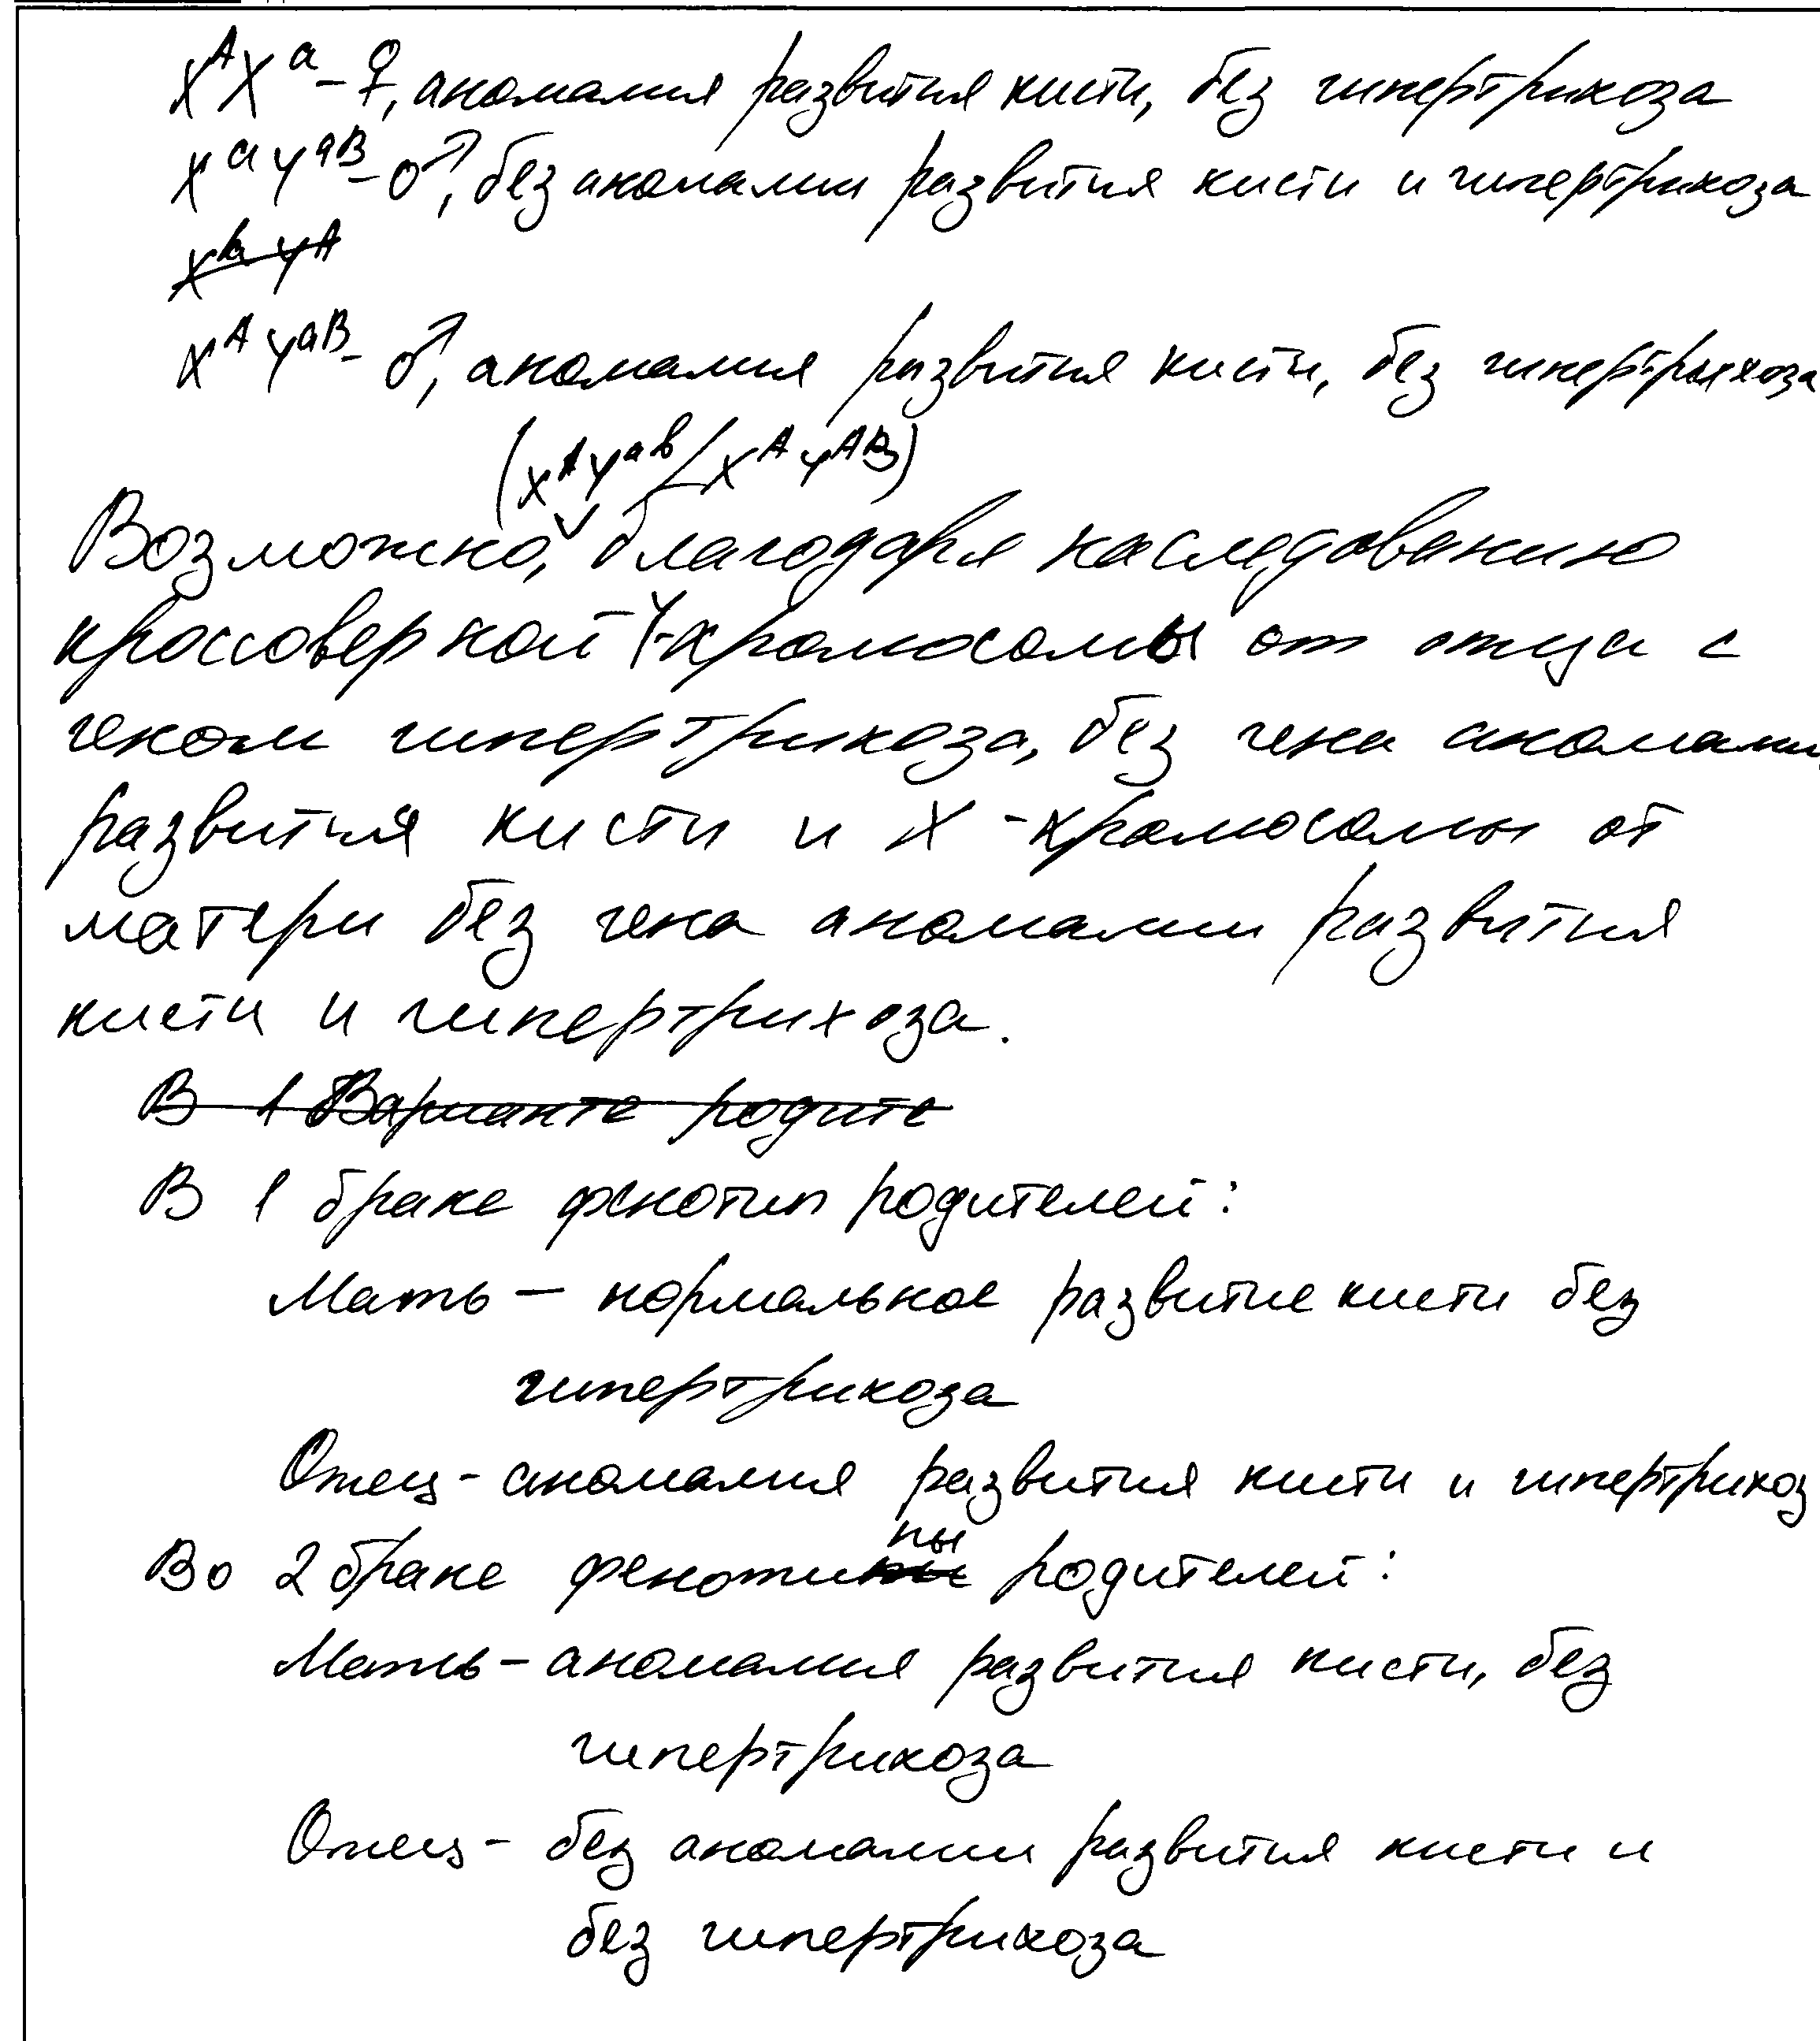 X^A X^a - ♀, аномалия развития кисти, без гипертрихоза
X^a Y^aB - ♂, без аномалии развития кисти и гипертрихоза
X^A Y^aB - ♂, аномалия развития кисти, без гипертрихоза
(X^A Y^ab / X^A Y^AB)
Возможно, благодаря наследованию
кроссоверной Y-хромосомы от отца с
геном гипертрихоза, без гена аномалии
развития кисти и X-хромосомы от
матери без гена аномалии развития
кисти и гипертрихоза.
В 1 Варианте родите
В 1 браке фенотип родителей:
Мать — нормальное развитие кисти без
гипертрихоза
Отец - аномалия развития кисти и гипертрихоз
Во 2 браке фенотипы родителей:
Мать - аномалия развития кисти, без
гипертрихоза
Отец - без аномалии развития кисти и
без гипертрихоза